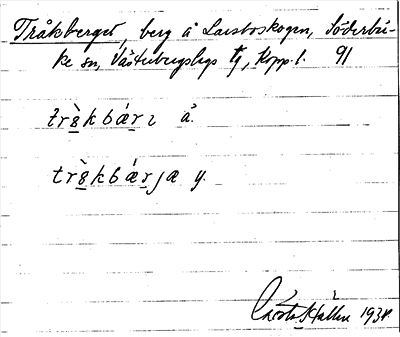 Tråkberget, berg å Larsboskogen, Söderbär-
ke sn, Västerbergslags tg, Kopp. l. 91
trs̀kbǽrɩ å.
trs̀kbǽrjæ y.
Gösta 1934.